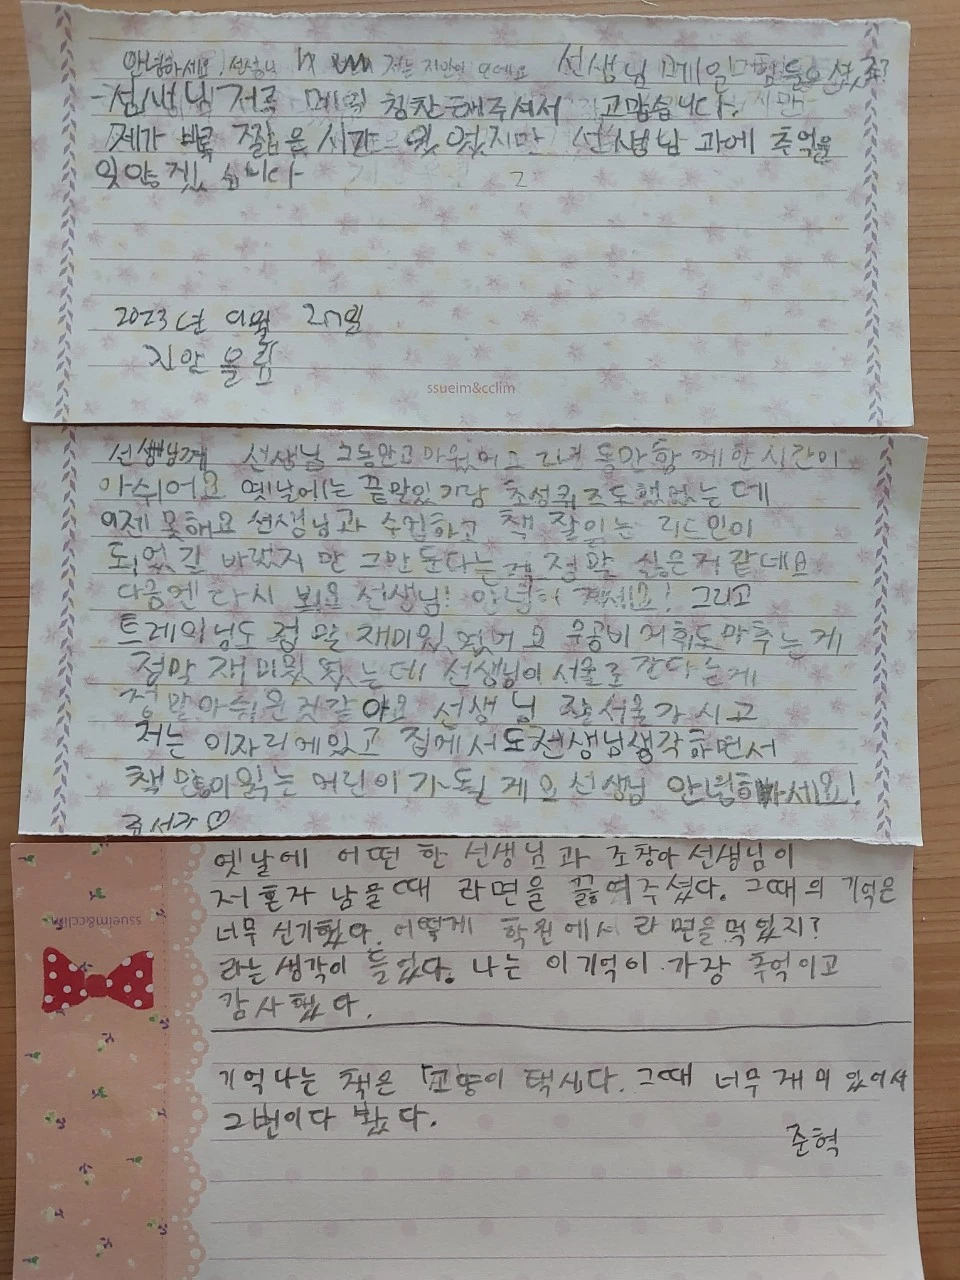 안녕하세요! 선생님 저는 지안이 선생님 매일 힘들으셨죠?
선생님 저를 매일 칭찬해주셔서 고맙습니다.
제가 비록 짧은 시간 있었지만 선생님 과에 추억을
잊않겠습니다
2023년 9월 27일
지안 올림
ssueim&cclim
선생님께 선생님 그동안고마웠어요 그동안함께한시간이
아쉬어요 옛날에는 끝말잇기랑 초성퀴즈도했었는데
이젠못해요 선생님과 수업하고 책 잘읽는 리드인이
되었길 바랬지만 그만둔다는게 정말 싫은거같네요
다음엔 다시 봬요 선생님! 안녕히 계세요! 그리고
트레이닝도 정말 재미있었어요 우공비 어휘도맞추는게
정막 재미있었는데 선생님이 서울로 간다는게
정말아쉬운것같아요 선생님 잘서울가시고
저는 이자리에있고 집에서도선생님생각하면서
책많이읽는 어린이가될게요 선생님 안녕히가세요!
옛날에 어떤 한 선생님과 조창아선생님이
저 혼자 남을때 라면을 끓여주셨다. 그때의 기억은
너무 신기했다. 어떻게 학원에서 라면을 먹었지?
라는 생각이 들었다. 나는 이기억이 가장 추억이고
감사했다.
ssueim&cclim
기억나는 책은 「고양이 택시」다. 그때 너무 재미있어서
2번이나 봤다.
준혁